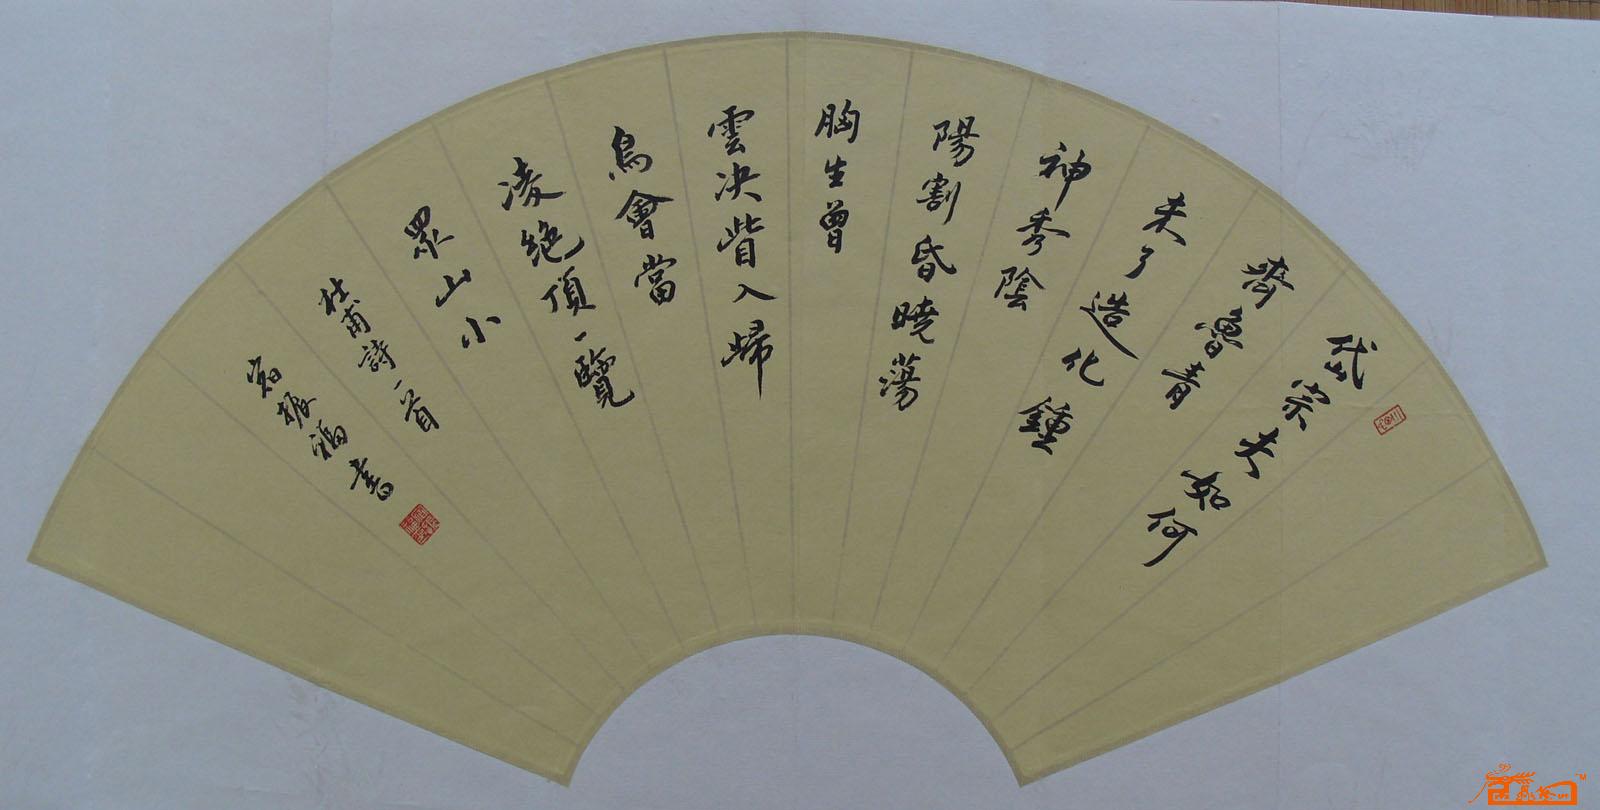 岱宗夫如何
齊魯青
未了造化鍾
神秀陰
陽割昏曉蕩
胸生曾
雲决眥入歸
鳥會當
凌絕頂一覽
眾山小
杜甫詩一首
宿振福書